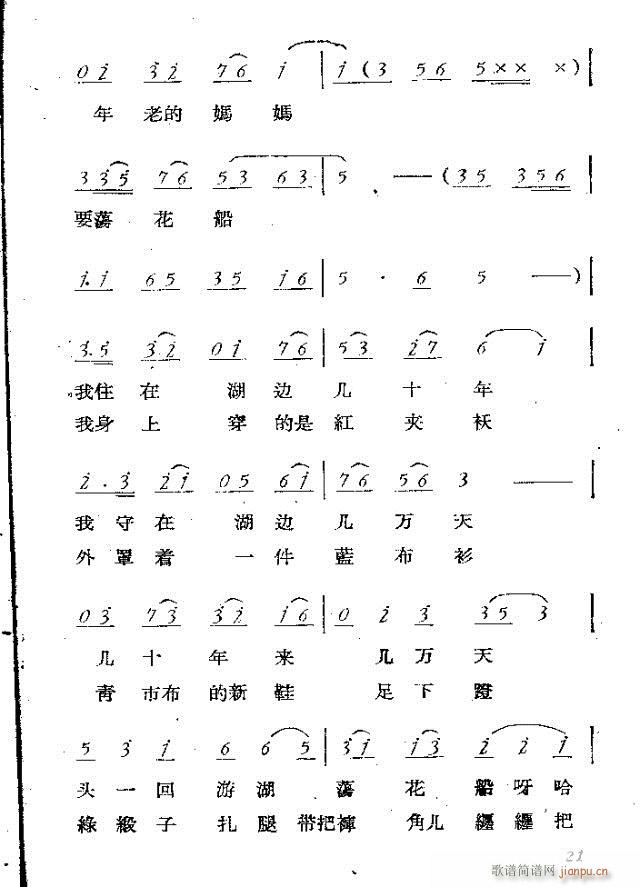 0 i 3 i 7 6 i | i ( 3 5 6 5 × × × ) |
年 老的 媽 媽
3 3 5 7 6 5 3 6 3 | 5 · —— ( 3 5 3 5 6 |
要蕩 花 船
i. i 6 5 3 5 i 6 | 5 · 6 5 —— ) |
3. 5 3 2 0 i 7 6 | 5 3 2 7 6 i |
我住 在 湖 边 几 十 年
我身 上 穿 的是 紅 夹 袄
2 . 3 2 i 0 5 6 i | 7 6 5 6 3 —— |
我 守 在 湖 边 几 万 天
外 罩 着 一 件 藍 布 衫
0 3 7 3 3 2 i 6 | 0 2 3 3 5 3 |
几 十 年 来 几 万 天
青 市布 的新 鞋 足 下 蹬
5 3 i 6 6 5 | 3 i i 3 2 2 i |
头 一 回 游 湖 蕩 花 船 呀 哈
綠 緞 子 扎 腿 带把 褲 角儿 纏 纏 把
21
歌谱简谱网
jianpu.cn